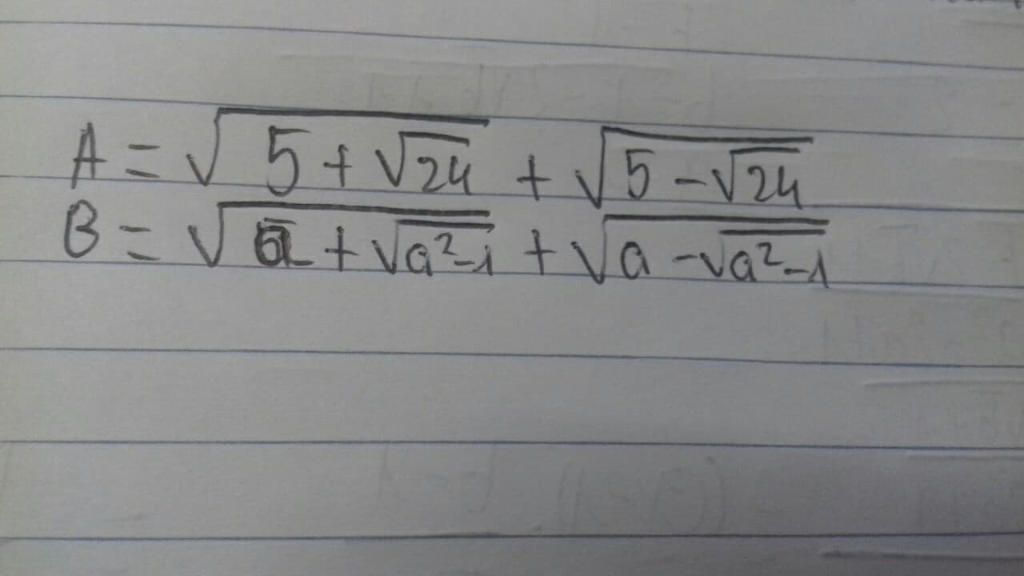 A = √(5 + √24) + √(5 - √24)
B = √(a + √(a²-1)) + √(a - √(a²-1))